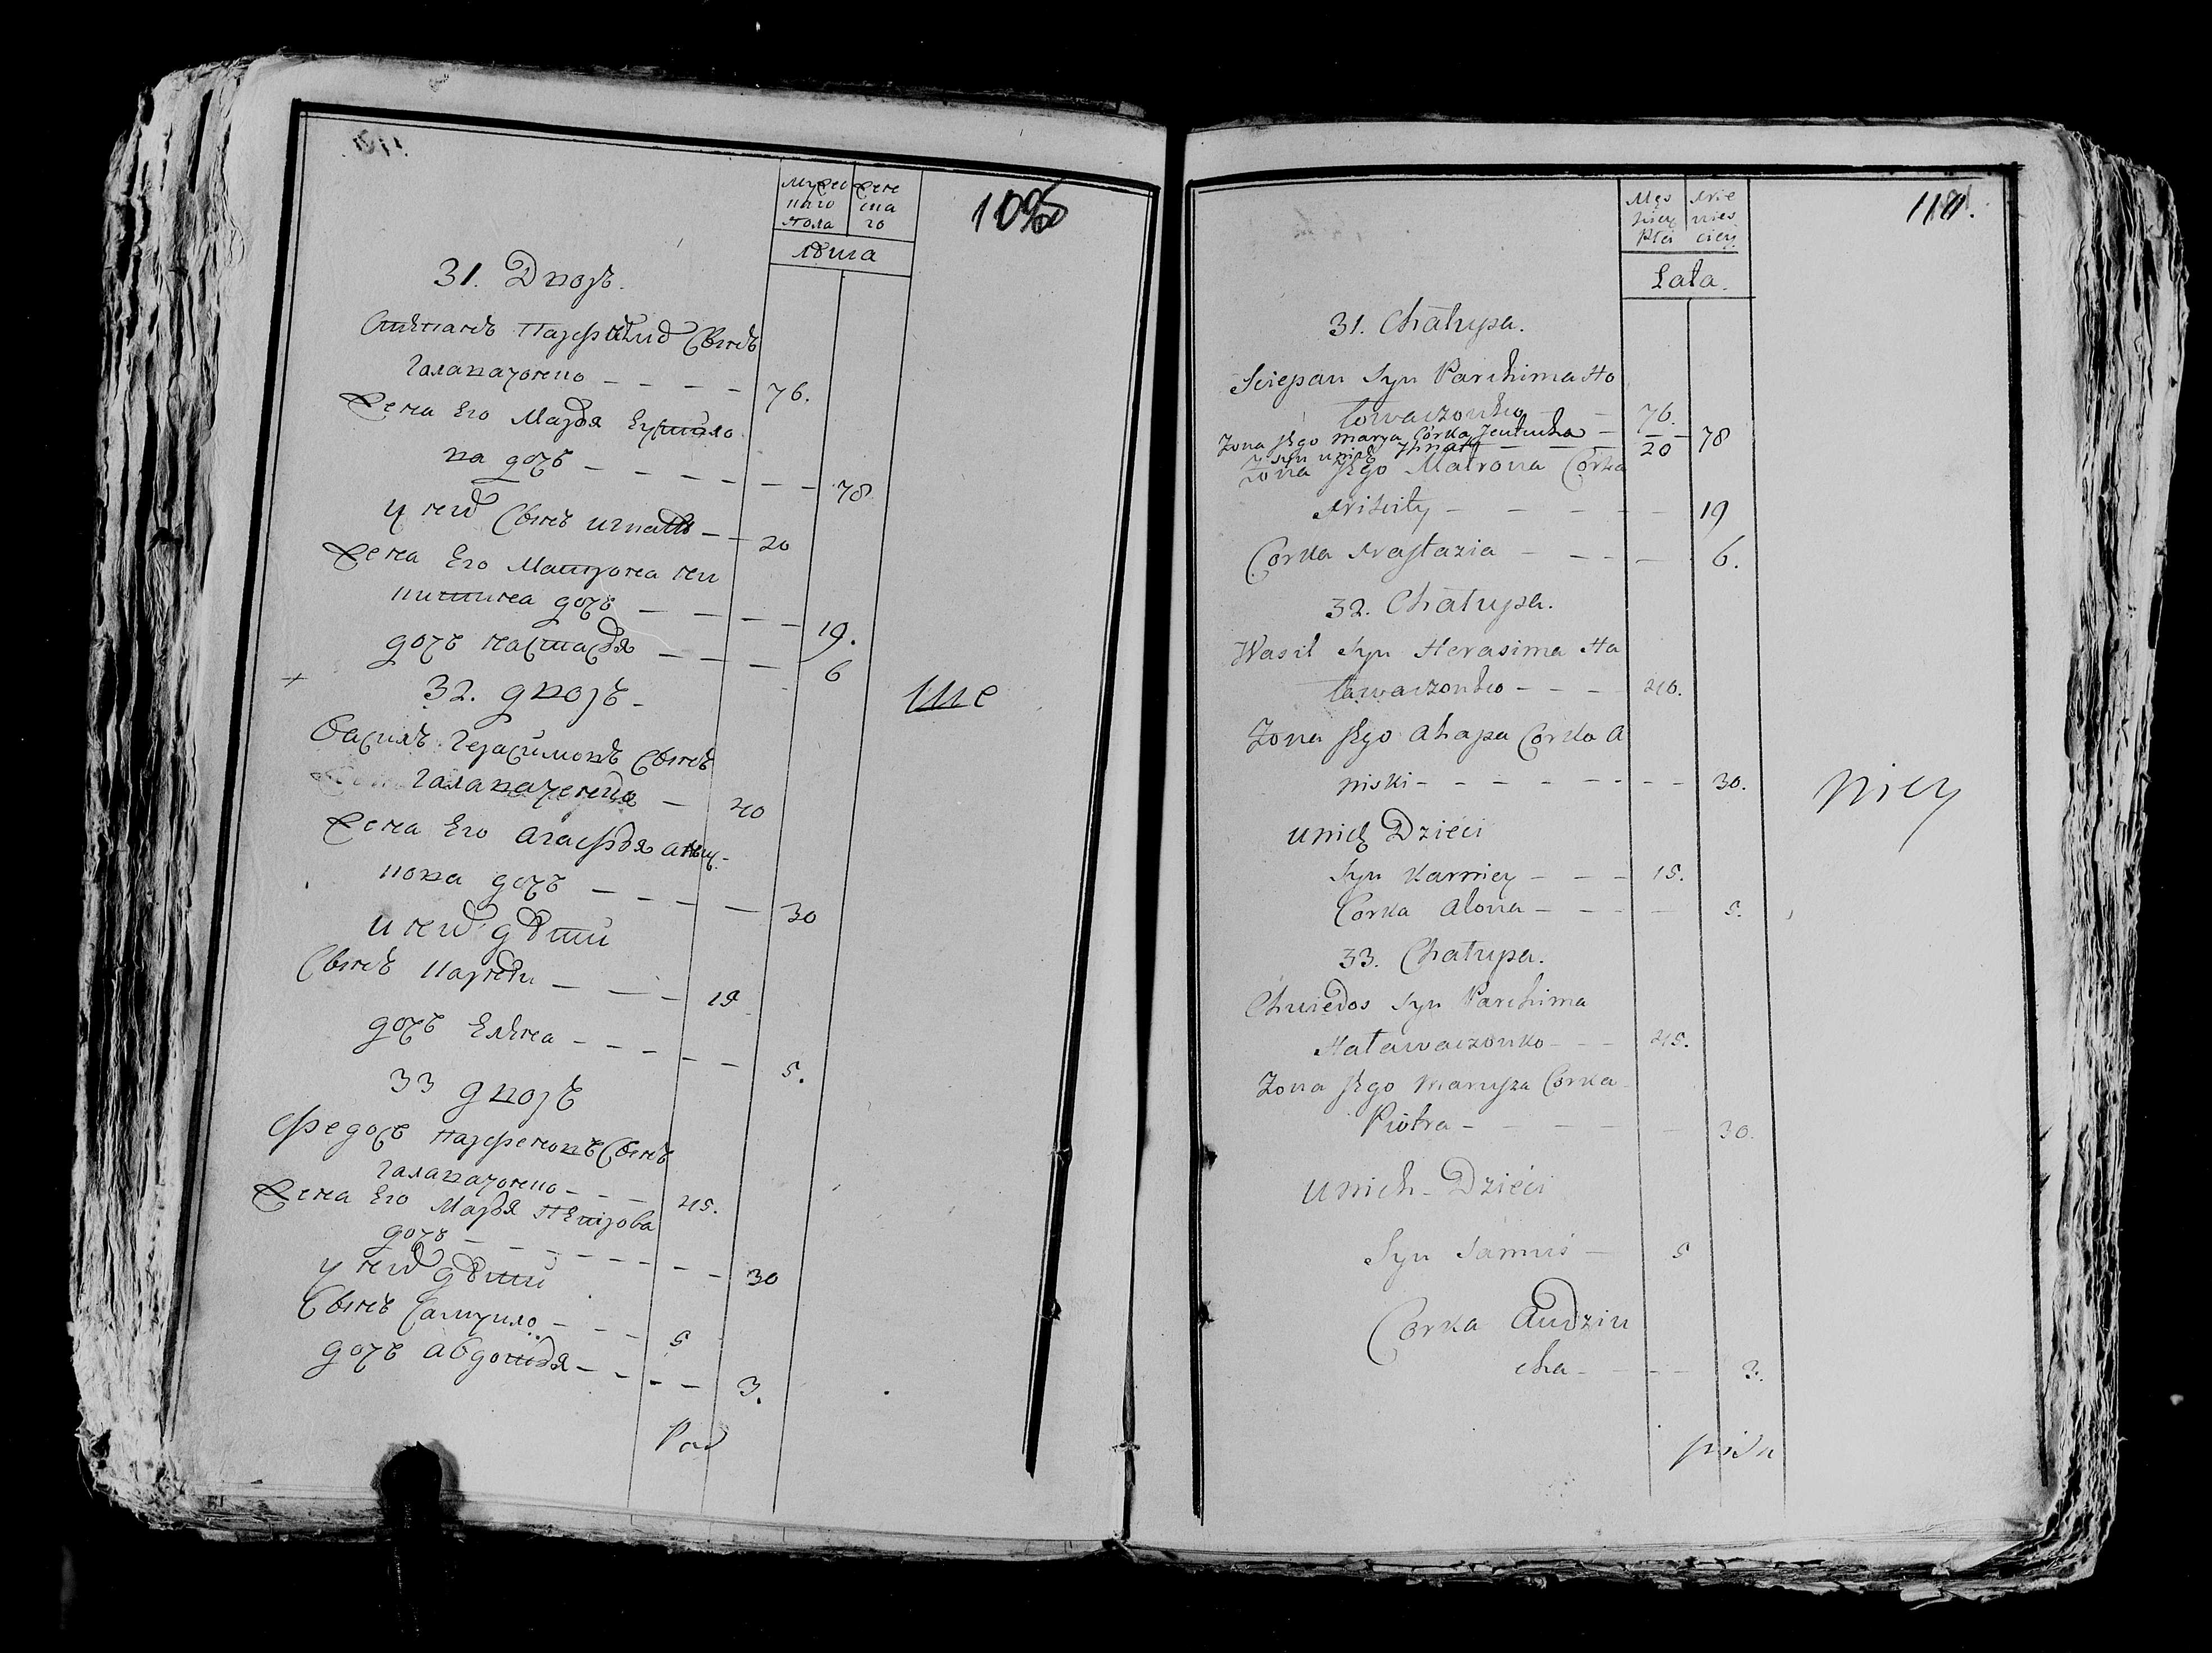 1095
мужес жен
каго ска
пола го
лѣта
31. Дворъ.
Степанъ Парфеновъ сынъ
Галавачонко - - - - 76.
Жена Его Марья Еутихо
ва дочь - - - - - - 78
у них сынъ игнатъ - - 20
Жена Его Матрона ни
китина дочь - - - - 19.
дочь настасья - - - 6
+ 32. дворъ -
Василь Герасимовъ сынъ
Галавачонко - 40
Жена Его Агафья анис
кова дочь - - - - - 30
у них дѣти
сынъ Карней - - - 15
дочь Елѣна - - - - - - 5.
33 дворъ
Федосъ Парфеновъ сынъ
галавачонко - - - 45.
Жена Его Марья Петрова
дочь - - - - - - - - 30
у них дѣти
сынъ Самуило - - - 5
дочь авдотья - - - - - 3.
118.
Męs Nie
kiey wies
Płci ciey
Lata.
31. Chałupa.
Sciepan Syn Parchima Ho
łowaczonko - - 76.
Zona Jego Marya Córka Jeutucha - - - 78
y syn u nich Jhnat - - - 20
zona Jego Matrona Córka
Nikity - - - - - - 19
Corka Nastazia - - - - - 6.
32. Chałupa.
Wasil Syn Herasima Ha
ławaczonko - - - - 40.
Zona Jego Ahapa Corka A
niski - - - - - - - - - 30.
u nich Dzieci
Syn Karniey - - - 15.
Corka Alona - - - - 5.
33. Chałupa.
Chwiedos Syn Parchima
Haławaczonko - - - 45.
Zona Jego Marysza Corka
Piotra - - - - - - 30.
u nich - Dzieci
Syn Samuś - 5
Corka Audziu
cha - - - - 3.